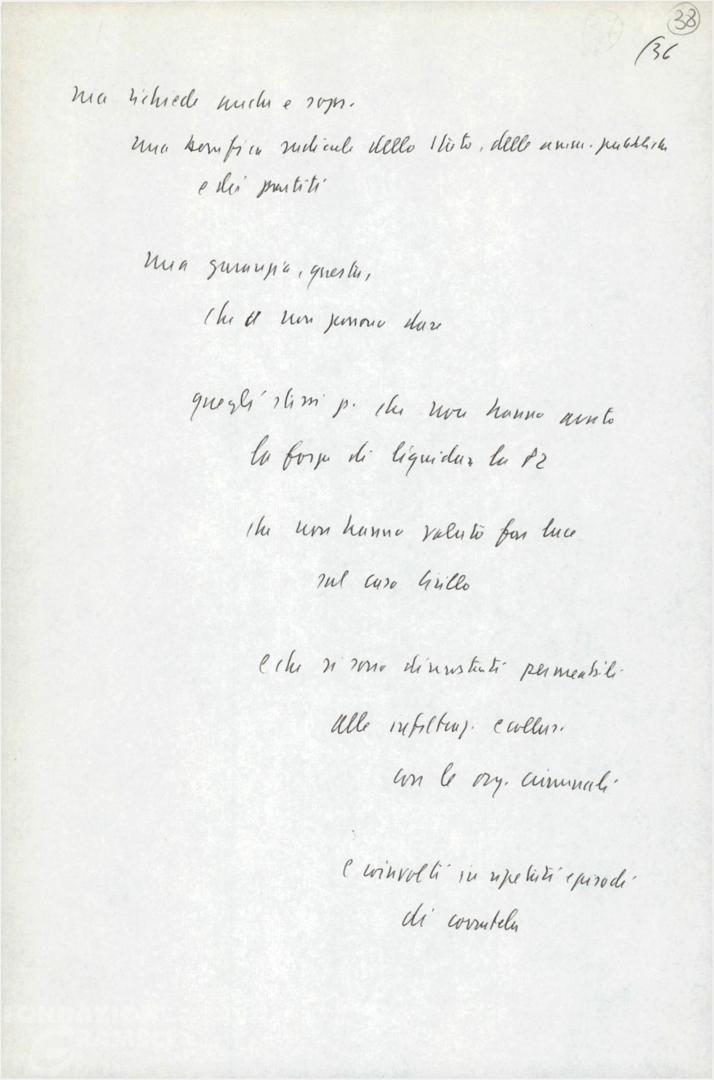 38
/36
ma richiede anche e sopr.
una bonifica radicale dello Stato, delle amm. pubbliche
e dei partiti
Una garanzia, questa,
che non possono dare
quegli stessi p. che non hanno avuto
la forza di liquidare la P2
che non hanno voluto fare luce
sul caso Cirillo
e che si sono dimostrati permeabili
alle infiltraz. e collus.
con le org. criminali
e coinvolti in ripetuti episodi
di corruttela
FONDAZIONE
GRAMSCI